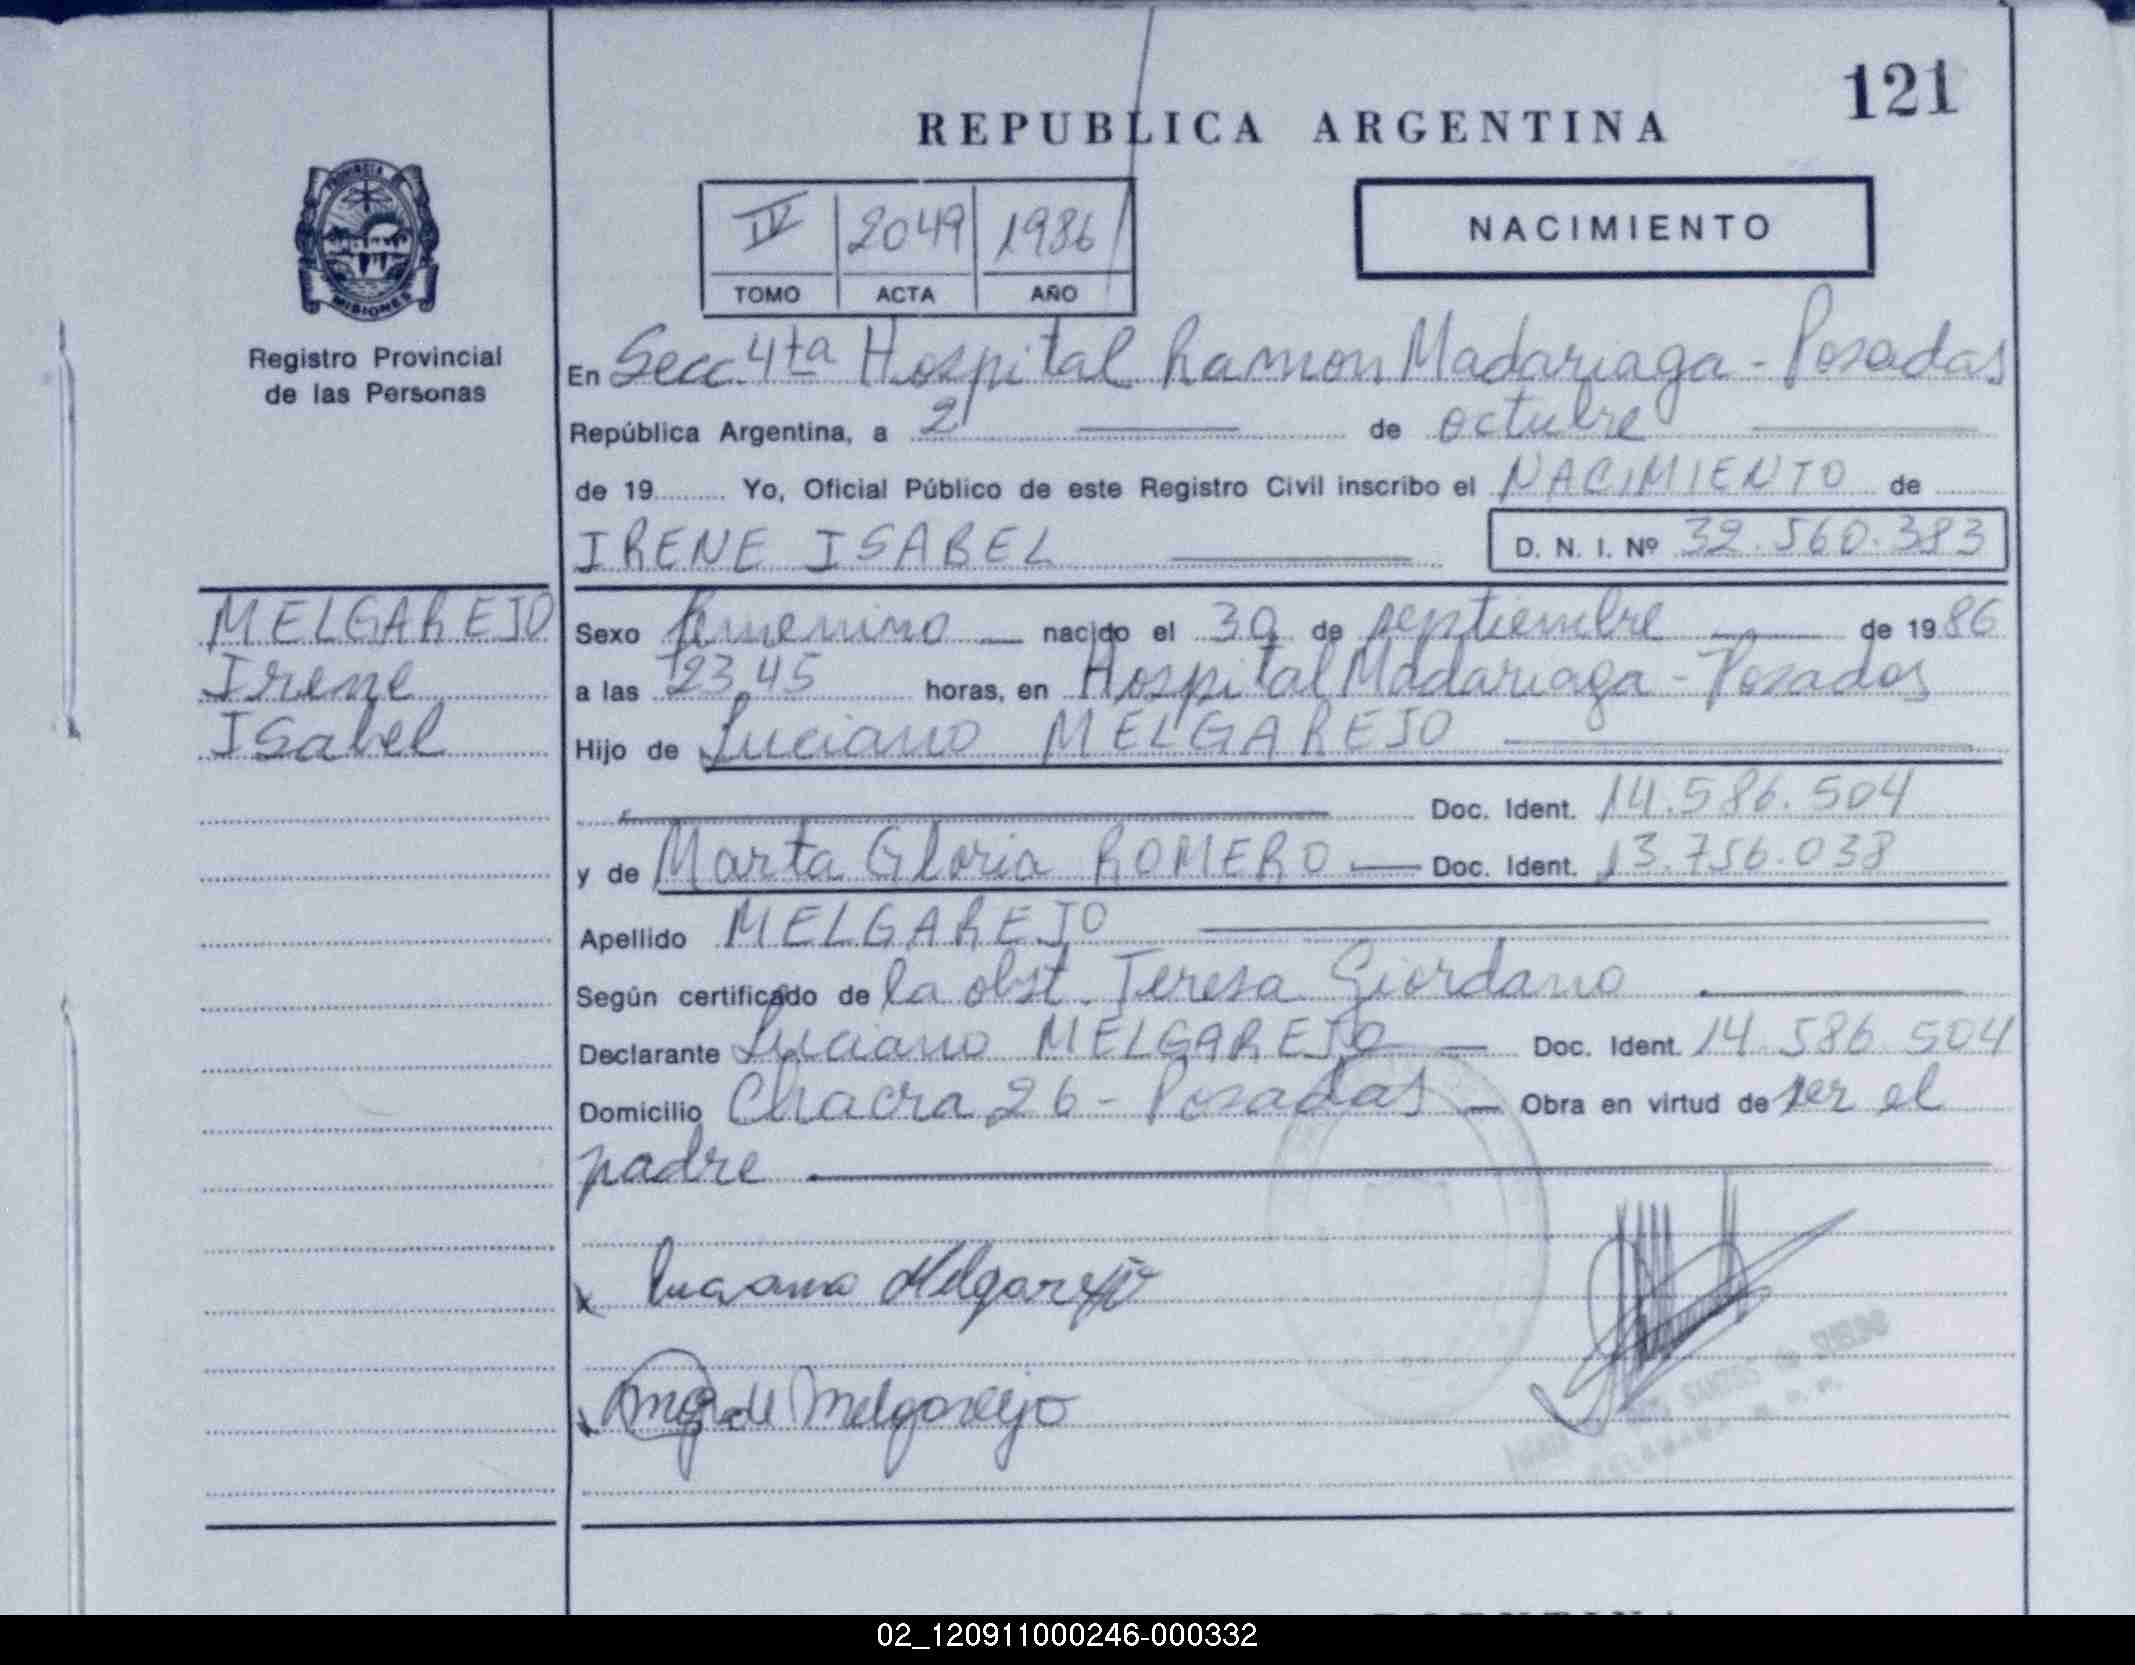 121
REPUBLICA ARGENTINA
PROVINCIA DE
MISIONES
Registro Provincial
de las Personas
IV 2049 1986
TOMO ACTA AÑO
NACIMIENTO
En Secc. 4ta Hospital Ramon Madariaga - Posadas
República Argentina, a 2 de octubre
de 19 Yo, Oficial Público de este Registro Civil inscribo el NACIMIENTO de
IRENE ISABEL D. N. I. Nº 32.560.383
MELGAREJO
Irene
Isabel
Sexo femenino nacido el 30 de septiembre de 1986
a las 23,45 horas, en Hospital Madariaga - Posadas
Hijo de Luciano MELGAREJO
Doc. Ident. 14.586.504
y de Marta Gloria ROMERO Doc. Ident. 13.756.038
Apellido MELGAREJO
Según certificado de la obst. Teresa Giordano
Declarante Luciano MELGAREJO Doc. Ident. 14.586.504
Domicilio Chacra 26 - Posadas Obra en virtud de ser el
padre
x Luciano Melgarejo
x de Melgarejo
SANTOS de
02_120911000246-000332